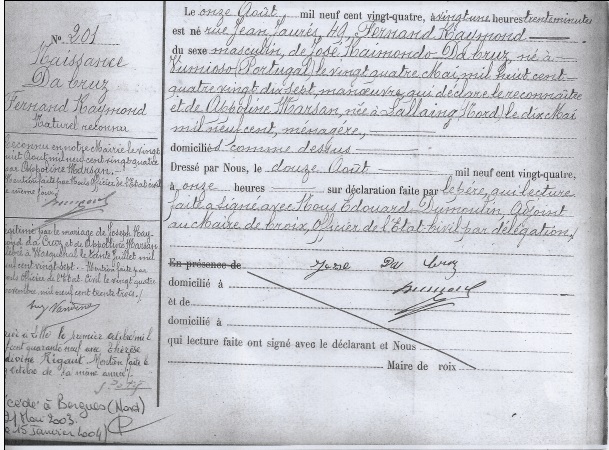 No 201
Naissance
Da Cruz
Fernand Raymond
Naturel reconnu
Reconnu en notre Mairie le vingt
Août mil neuf cent vingt quatre
par Appoline Marsan.
Mention faite par Nous Officier de l'Etat civil
même jour
Légitimé par le mariage de Joseph Ray-
mond da Cruz et de Appoline Marsan
célébré à le trente Juillet mil
neuf cent vingt sept. Mention faite par
nous Officier de l'Etat Civil le vingt quatre
novembre mil neuf cent trente trois
Marié à le premier octobre mil
neuf cent quarante neuf avec Thérèse
Rigaut. Mention faite le
octobre de la même année
Décédé à Bergues (Nord)
21 Mai 2003
le 15 Janvier 2004
Le onze Août mil neuf cent vingt-quatre, à vingt une heures trente minutes
est né rue Jean Jaurès, 49, Fernand Raymond
du sexe masculin, de José Raimondo Da Cruz, né à
Vumioso (Portugal) le vingt quatre Mai mil huit cent
quatre vingt dix sept, manœuvre, qui déclare le reconnaître
et de Appoline Marsan née à Lallaing (Nord) le dix Mai
mil neuf cent, ménagère,
domiciliés comme dessus
Dressé par Nous, le douze Août mil neuf cent vingt-quatre,
à onze heures sur déclaration faite par le père, qui lecture
faite a signé avec Nous Edouard Dumoulin, Adjoint
au Maire de Croix, Officier de l'Etat Civil par délégation
En présence de
Da Cruz
domicilié à
et de
domicilié à
qui lecture faite ont signé avec le déclarant et Nous
Maire de roix